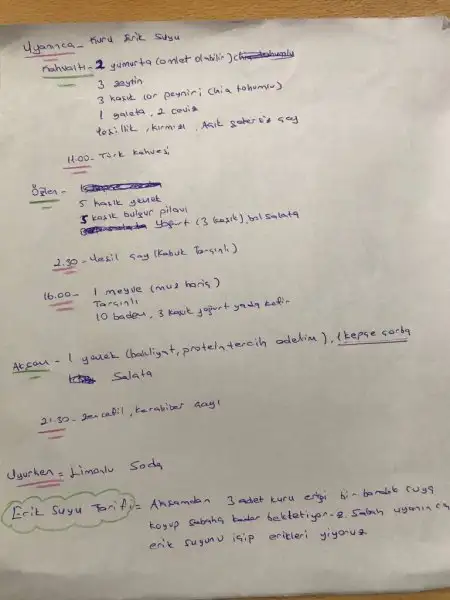 Uyanınca - Kuru Erik Suyu
Kahvaltı - 2 yumurta (omlet olabilir)
3 zeytin
3 kaşık lor peyniri (chia tohumlu)
1 galeta, 2 ceviz
Yeşillik, kırmızı, Açık şekersiz çay
11.00 - Türk kahvesi
Öğlen -
5 kaşık yemek
3 kaşık bulgur pilavı
yoğurt (3 kaşık), bol salata
2.30 - Yeşil çay (Kabuk Tarçınlı)
16.00 - 1 meyve (muz hariç)
Tarçınlı
10 badem, 3 kaşık yoğurt yada kefir
Akşam - 1 yemek (bakliyat, protein tercih edelim), 1 kepçe çorba
Salata
21.30 - Zencefil, karabiber çayı
Uyurken = Limonlu Soda
Erik Suyu Tarifi = Akşamdan 3 adet kuru eriği bir bardak suya
koyup sabaha kadar bekletiyoruz. Sabah uyanınca
erik suyunu içip erikleri yiyoruz